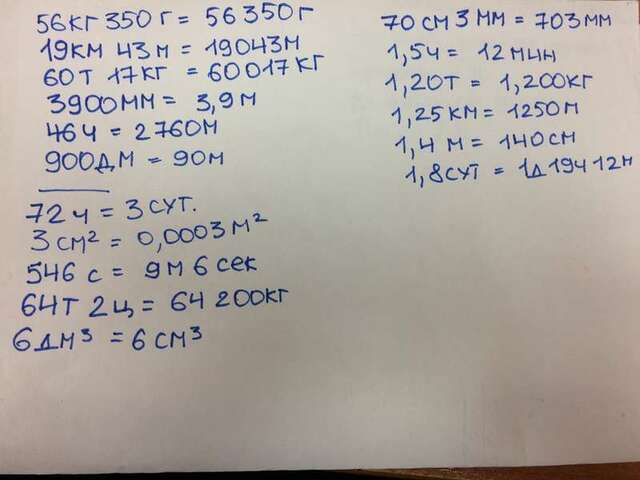 56кг 350 г = 56 350 г
19км 43 м = 19043м
60т 17кг = 60017 кг
3900мм = 3,9 м
46 ч = 2760м
900дм = 90м
72 ч = 3 сут.
3 см² = 0,0003 м²
546 с = 9м 6 сек
64т 2ц = 64 200кг
6 дм³ = 6 см³
70 см 3 мм = 703 мм
1,5ч = 12 мин
1,20т = 1,200кг
1,25 км = 1250м
1,4 м = 140см
1,8сут = 1д 19ч 12м